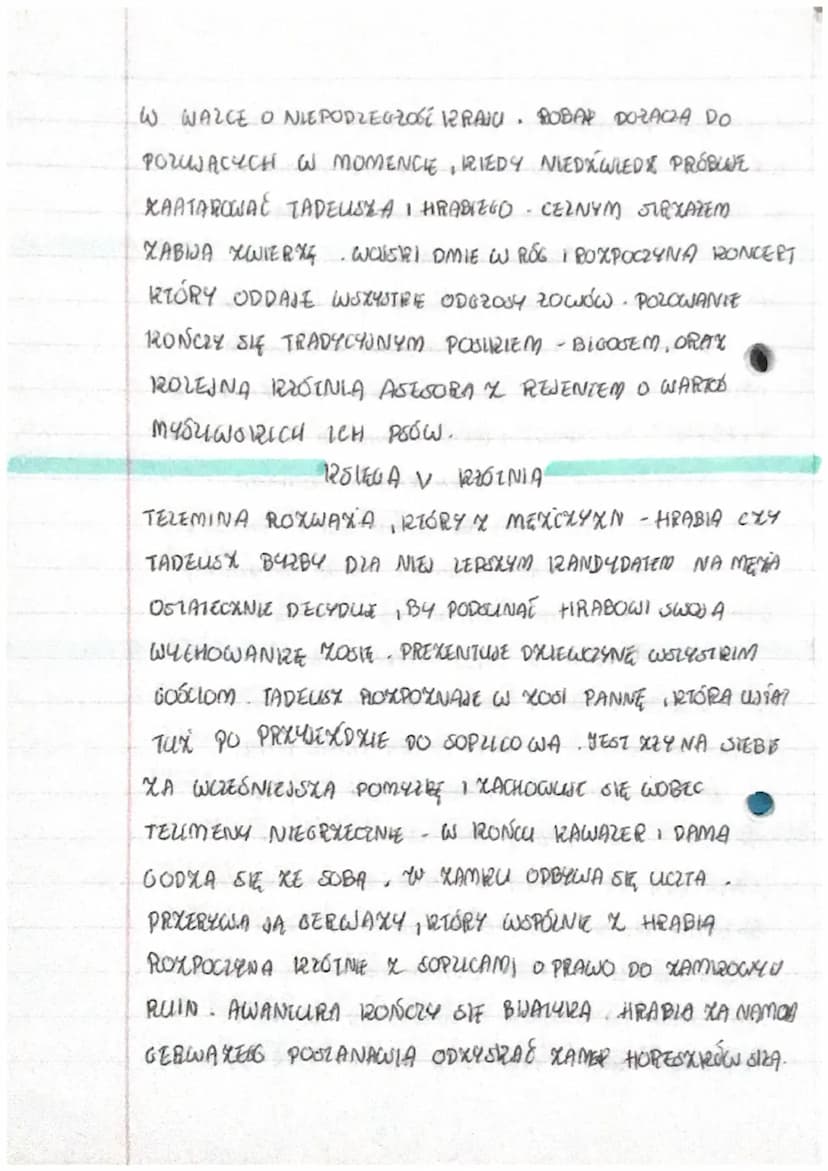 W WALCE O NIEPODLEGŁOŚĆ KRAJU. ROBAK DOŁĄCZA DO
POLUJĄCYCH W MOMENCIE, KIEDY NIEDŹWIEDŹ PRÓBUJE
ZAATAKOWAĆ TADEUSZA I HRABIEGO. CELNYM STRZAŁEM
ZABIJA ZWIERZĘ. WOJSKI DMIE W RÓG I ROZPOCZYNA KONCERT
KTÓRY ODDAJE WSZYSTKIE ODGŁOSY ŁOWÓW. POLOWANIE
KOŃCZY SIĘ TRADYCYJNYM POSIŁKIEM - BIGOSEM, ORAZ
KOLEJNĄ KŁÓTNIĄ ASESORA Z REJENTEM O WARTOŚĆ
MYŚLIWSKICH ICH PSÓW.
KSIĘGA V KŁÓTNIA
TELEMINA ROZWAŻA, KTÓRY Z MĘŻCZYZN - HRABIA CZY
TADEUSZ BYŁBY DLA NIEJ LEPSZYM KANDYDATEM NA MĘŻA
OSTATECZNIE DECYDUJE, BY PODSUNĄĆ HRABOWI SWOJĄ
WYCHOWANKĘ ZOSIĘ. PREZENTUJE DZIEWCZYNĘ WSZYSTKIM
GOŚCIOM. TADEUSZ ROZPOZNAJE W ZOSI PANNĘ, KTÓRĄ WIDZIAŁ
TUŻ PO PRZYJEŹDZIE DO SOPLICOWA. JEST ZŁY NA SIEBIE
ZA WCZEŚNIEJSZĄ POMYŁKĘ I ZACHOWUJE SIĘ WOBEC
TELIMENY NIEGRZECZNIE. W KOŃCU KAWALER I DAMA
GODZĄ SIĘ ZE SOBĄ. W ZAMKU ODBYWA SIĘ UCZTA.
PRZERYWA JĄ GERWAZY, KTÓRY WSPÓLNIE Z HRABIĄ
ROZPOCZYNA KŁÓTNIE Z SOPLICAMI O PRAWO DO ZAMKOWYCH
RUIN. AWANTURA KOŃCZY SIĘ BIJATYKĄ. HRABIA ZA NAMOWĄ
GERWAZEGO POSTANAWIA ODZYSKAĆ ZAMEK HORESZKÓW SIŁĄ.